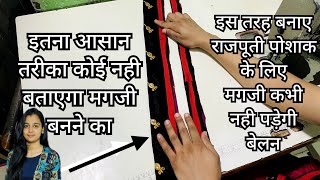 इतना आसान
तरीका कोई नही
बताएगा मगजी
बनने का
इस तरह बनाए
राजपूती पोशाक
के लिए
मगजी कभी
नही पड़ेगी
बेलन